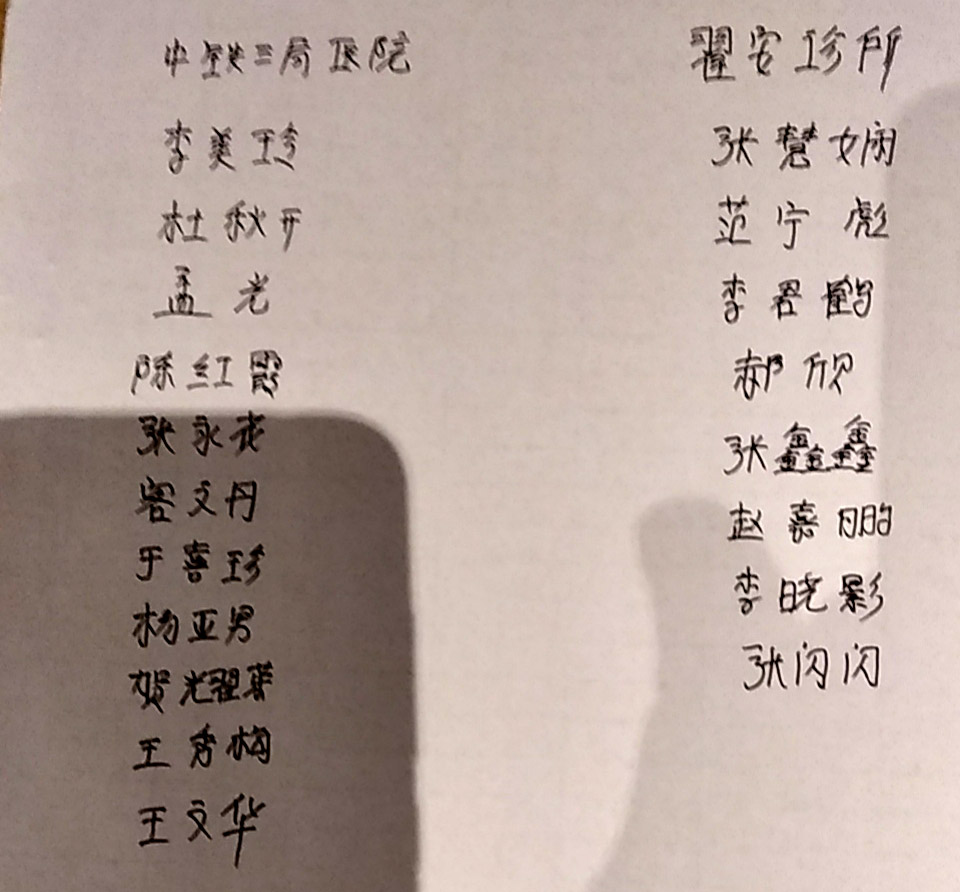 中铁三局医院
李美珍
杜秋开
孟光
陈红霞
张永花
容文丹
于喜珍
杨亚男
贺耀菲
王秀梅
王文华
翟安珍所
张慧娴
范宁彪
李君鹤
郝欣
张鑫鑫
赵嘉鹏
李晓影
张闪闪